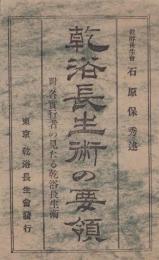 乾浴長生會
石原保秀述
乾浴長生術の要領
附 各實行者の見たる乾浴長生術
東京 乾浴長生會發行